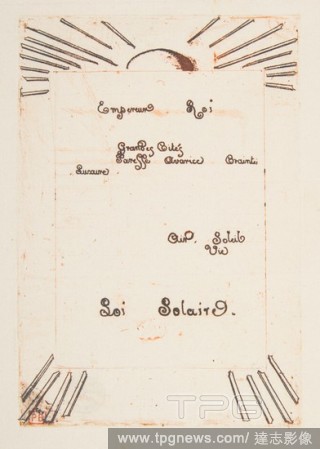 Empereur Roi
Grandes Cités
Paresse Avarice
Luxure
Air. Soleil
Vie
Loi Solaire.
TPG
www.tpgnews.com/ 達志影像